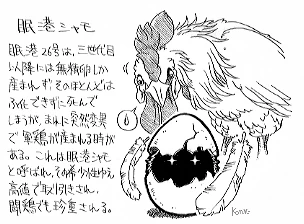 眠港シャモ
眠港26号は、三世代目
以降には無精卵しか
産まれず、そのほとんどは
ふ化できずに死んで
しまうが、まれに突然変異
で軍鶏が産まれる時が
ある。これは眠港シャモ
と呼ばれ、その希少性ゆえ
高値で取引され、
闘鶏でも珍重される。